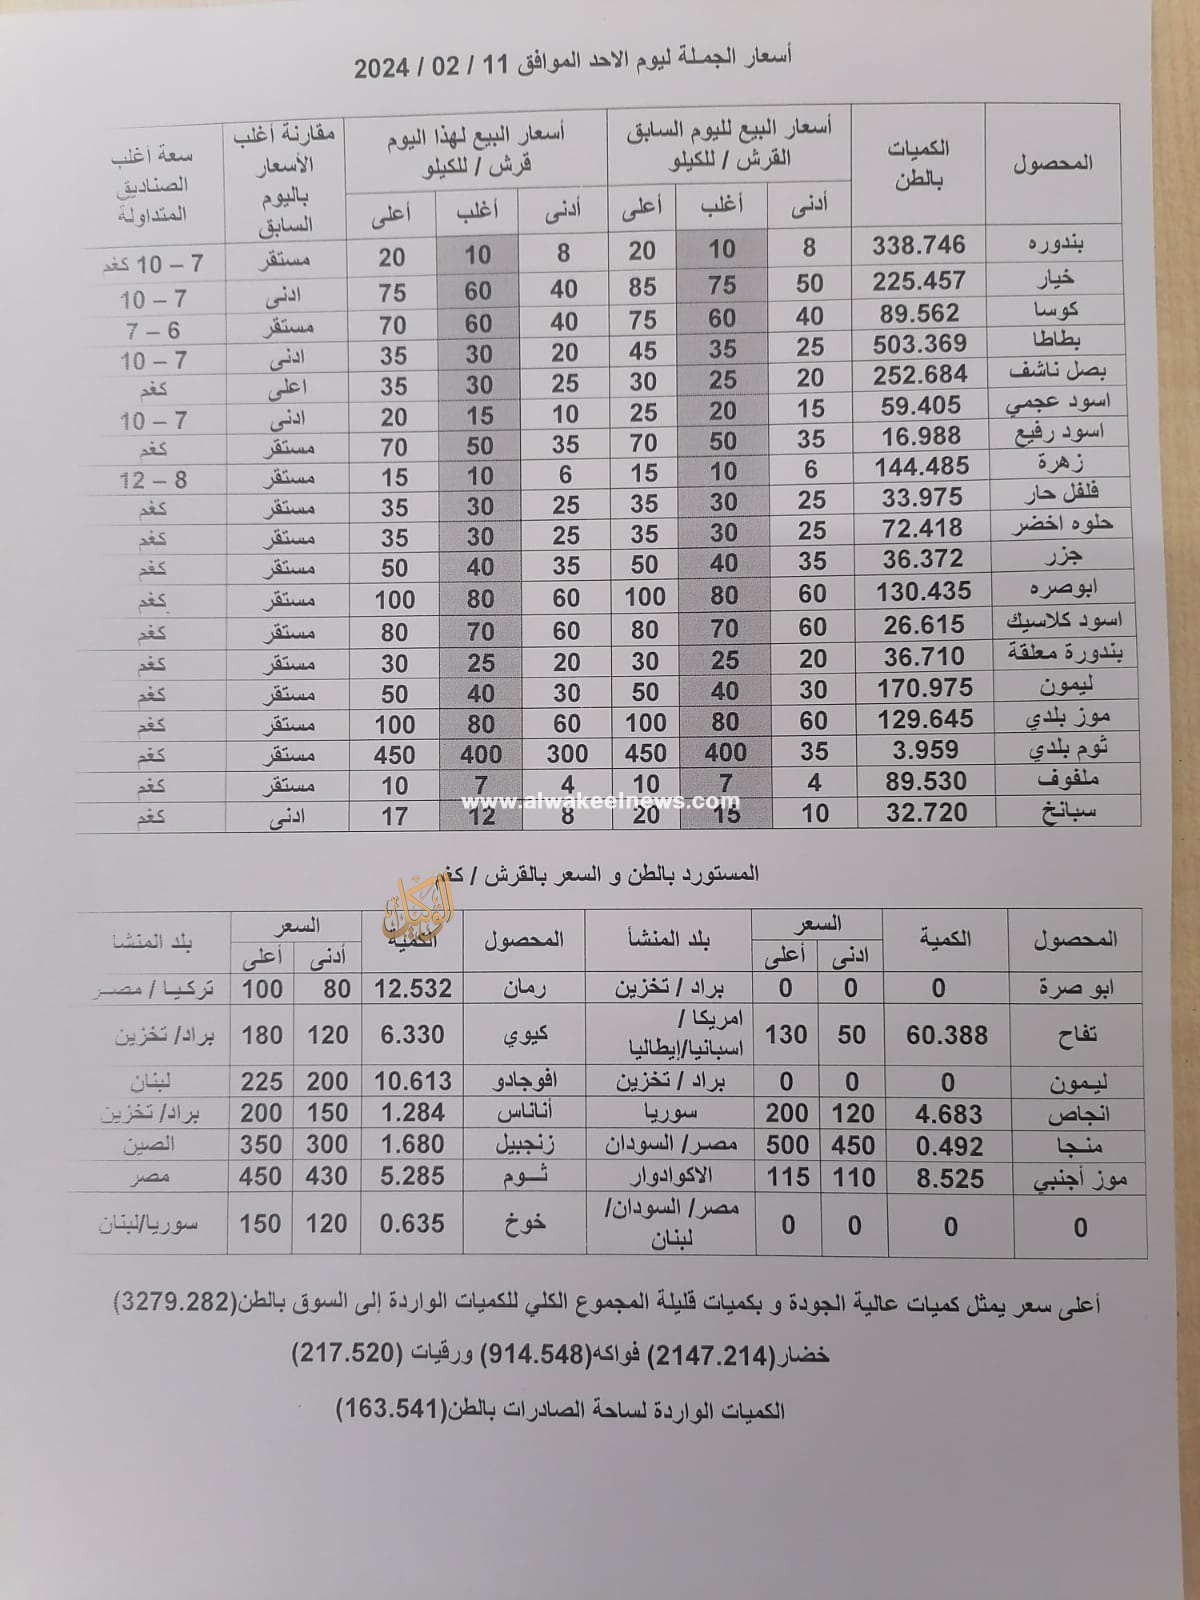 أسعار الجملة ليوم الاحد الموافق 11 / 02 / 2024
المحصول الكميات بالطن أسعار البيع لليوم السابق القرش / للكيلو أسعار البيع لهذا اليوم قرش / للكيلو مقارنة أغلب الأسعار باليوم السابق سعة أغلب الصناديق المتداولة
أدنى أغلب أعلى أدنى أغلب أعلى
بندوره 338.746 8 10 20 8 10 20 مستقر 7 – 10 كغم
خيار 225.457 50 75 85 40 60 75 ادنى 7 – 10
كوسا 89.562 40 60 75 40 60 70 مستقر 6 – 7
بطاطا 503.369 25 35 45 20 30 35 ادنى 7 – 10
بصل ناشف 252.684 20 25 30 25 30 35 اعلى كغم
اسود عجمي 59.405 15 20 25 10 15 20 ادنى 7 – 10
اسود رفيع 16.988 35 50 70 35 50 70 مستقر كغم
زهرة 144.485 6 10 15 6 10 15 مستقر 8 – 12
فلفل حار 33.975 25 30 35 25 30 35 مستقر كغم
حلوه اخضر 72.418 25 30 35 25 30 35 مستقر كغم
جزر 36.372 35 40 50 35 40 50 مستقر كغم
ابوصره 130.435 60 80 100 60 80 100 مستقر كغم
اسود كلاسيك 26.615 60 70 80 60 70 80 مستقر كغم
بندورة معلقة 36.710 20 25 30 20 25 30 مستقر كغم
ليمون 170.975 30 40 50 30 40 50 مستقر كغم
موز بلدي 129.645 60 80 100 60 80 100 مستقر كغم
ثوم بلدي 3.959 35 400 450 300 400 450 مستقر كغم
ملفوف 89.530 4 7 10 4 7 10 مستقر كغم
www.alwakeelnews.com
سبانخ 32.720 10 15 20 8 12 17 ادنى كغم
المستورد بالطن و السعر بالقرش / كغم
الوكيل
المحصول الكمية السعر بلد المنشأ المحصول الكمية السعر بلد المنشأ
ادنى أعلى أدنى أعلى
ابو صرة 0 0 0 براد / تخزين رمان 12.532 80 100 تركيا / مصر
تفاح 60.388 50 130 امريكا / اسبانيا/إيطاليا كيوي 6.330 120 180 براد/ تخزين
ليمون 0 0 0 براد / تخزين افوجادو 10.613 200 225 لبنان
انجاص 4.683 120 200 سوريا أناناس 1.284 150 200 براد/ تخزين
منجا 0.492 450 500 مصر/ السودان زنجبيل 1.680 300 350 الصين
موز أجنبي 8.525 110 115 الاكوادوار ثـوم 5.285 430 450 مصر
0 0 0 0 مصر/ السودان/ لبنان خوخ 0.635 120 150 سوريا/لبنان
أعلى سعر يمثل كميات عالية الجودة و بكميات قليلة المجموع الكلي للكميات الواردة إلى السوق بالطن(3279.282)
خضار(2147.214) فواكه(914.548) ورقيات (217.520)
الكميات الواردة لساحة الصادرات بالطن(163.541)